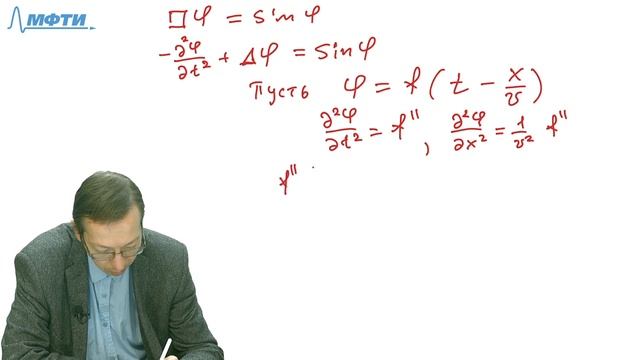 МФТИ
□φ = sin φ
-∂²φ/∂t² + Δφ = sin φ
Пусть φ = f(t - x/v)
∂²φ/∂t² = f'', ∂²φ/∂x² = 1/v² f''
f''